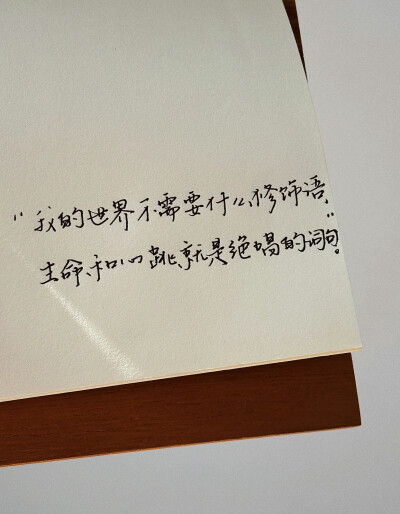 “我的世界不需要什么修饰语,
生命和心跳就是绝唱的词句。”